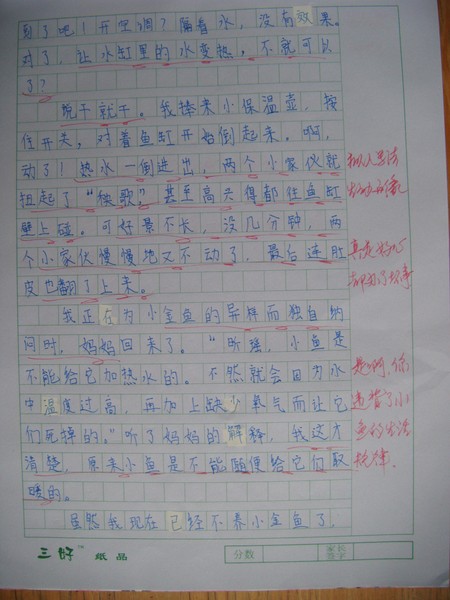 到了吧！开空调？隔着水，没有效果。
对了，让水缸里的水变热，不就可以
了？
说干就干。我捧来小保温壶，按
住开关，对着鱼缸开始倒起来。啊，
动了！热水一倒进去，两个小家伙就
扭起了“秧歌”，甚至高兴得都往鱼缸
壁上碰。可好景不长，没几分钟，两
个小家伙慢慢地又不动了，最后连肚
皮也翻了上来。
我正在为小金鱼的异样而独自纳
闷时，妈妈回来了。“昕瑶，小鱼是
不能给它加热水的。不然就会因为水
中温度过高，再加上缺少氧气而让它
们死掉的。”听了妈妈的解释，我这才
清楚，原来小鱼是不能随便给它们取
暖的。
虽然我现在已经不养小金鱼了，
拟人写法
真是好心
却办了坏事
是啊，你
违背了小
鱼的生活
规律。
三好 纸品
分数
家长
签字